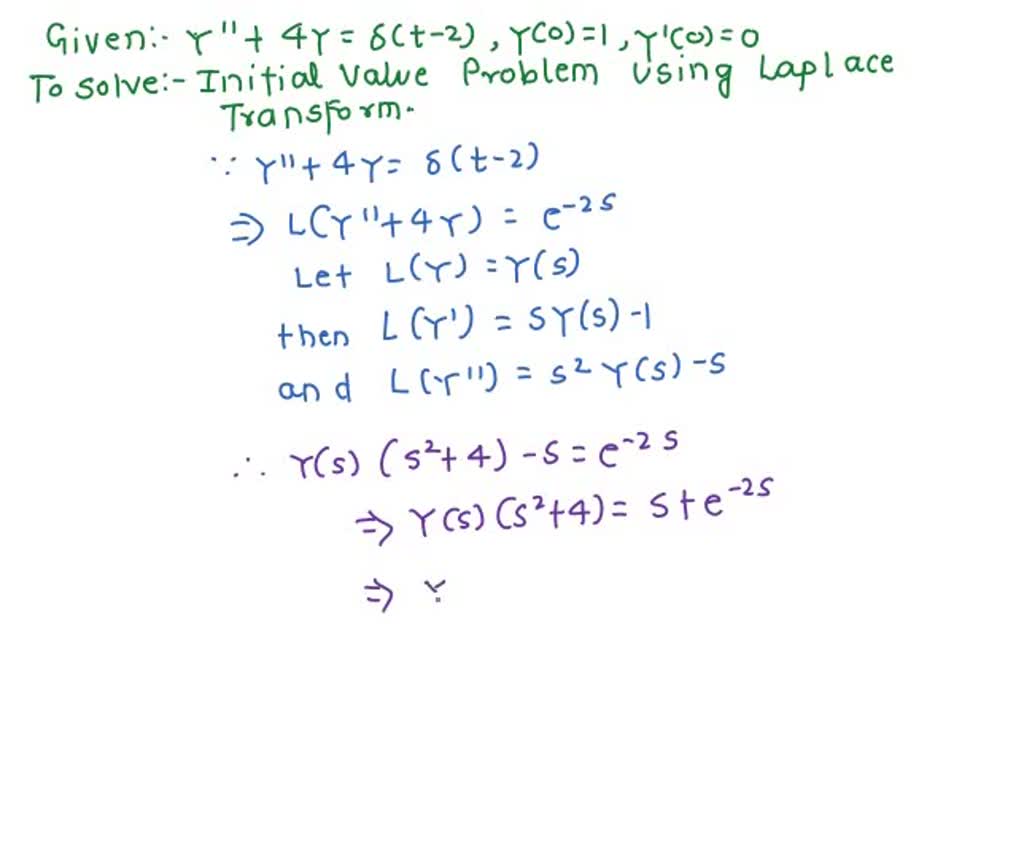 Given:- Y"+ 4Y = δ(t-2), Y(0)=1, Y'(0)=0
To solve:- Initial Value Problem using Laplace
Transform.
∵ Y"+ 4Y= δ(t-2)
⇒ L(Y"+4Y) = e^{-2s}
Let L(Y) = Y(s)
then L(Y') = SY(s)-1
and L(Y") = s² Y(s) -s
∴ Y(s) (s²+4) -s = e^{-2s}
⇒ Y(s)(s²+4) = s+e^{-2s}
⇒ Y